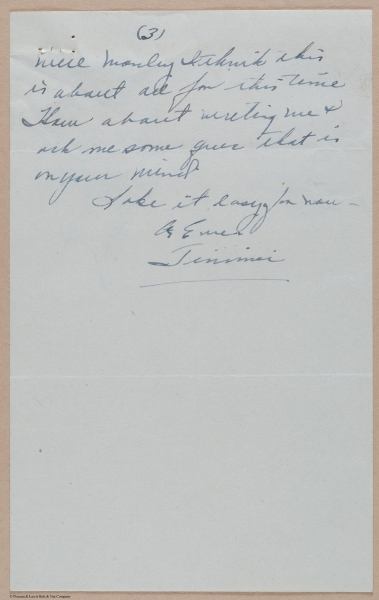 (3)
well Manley I think this
is about all for this time
How about writing me &
ask me some ques that is
on your mind
Take it easy for now –
As Ever
Jimmie